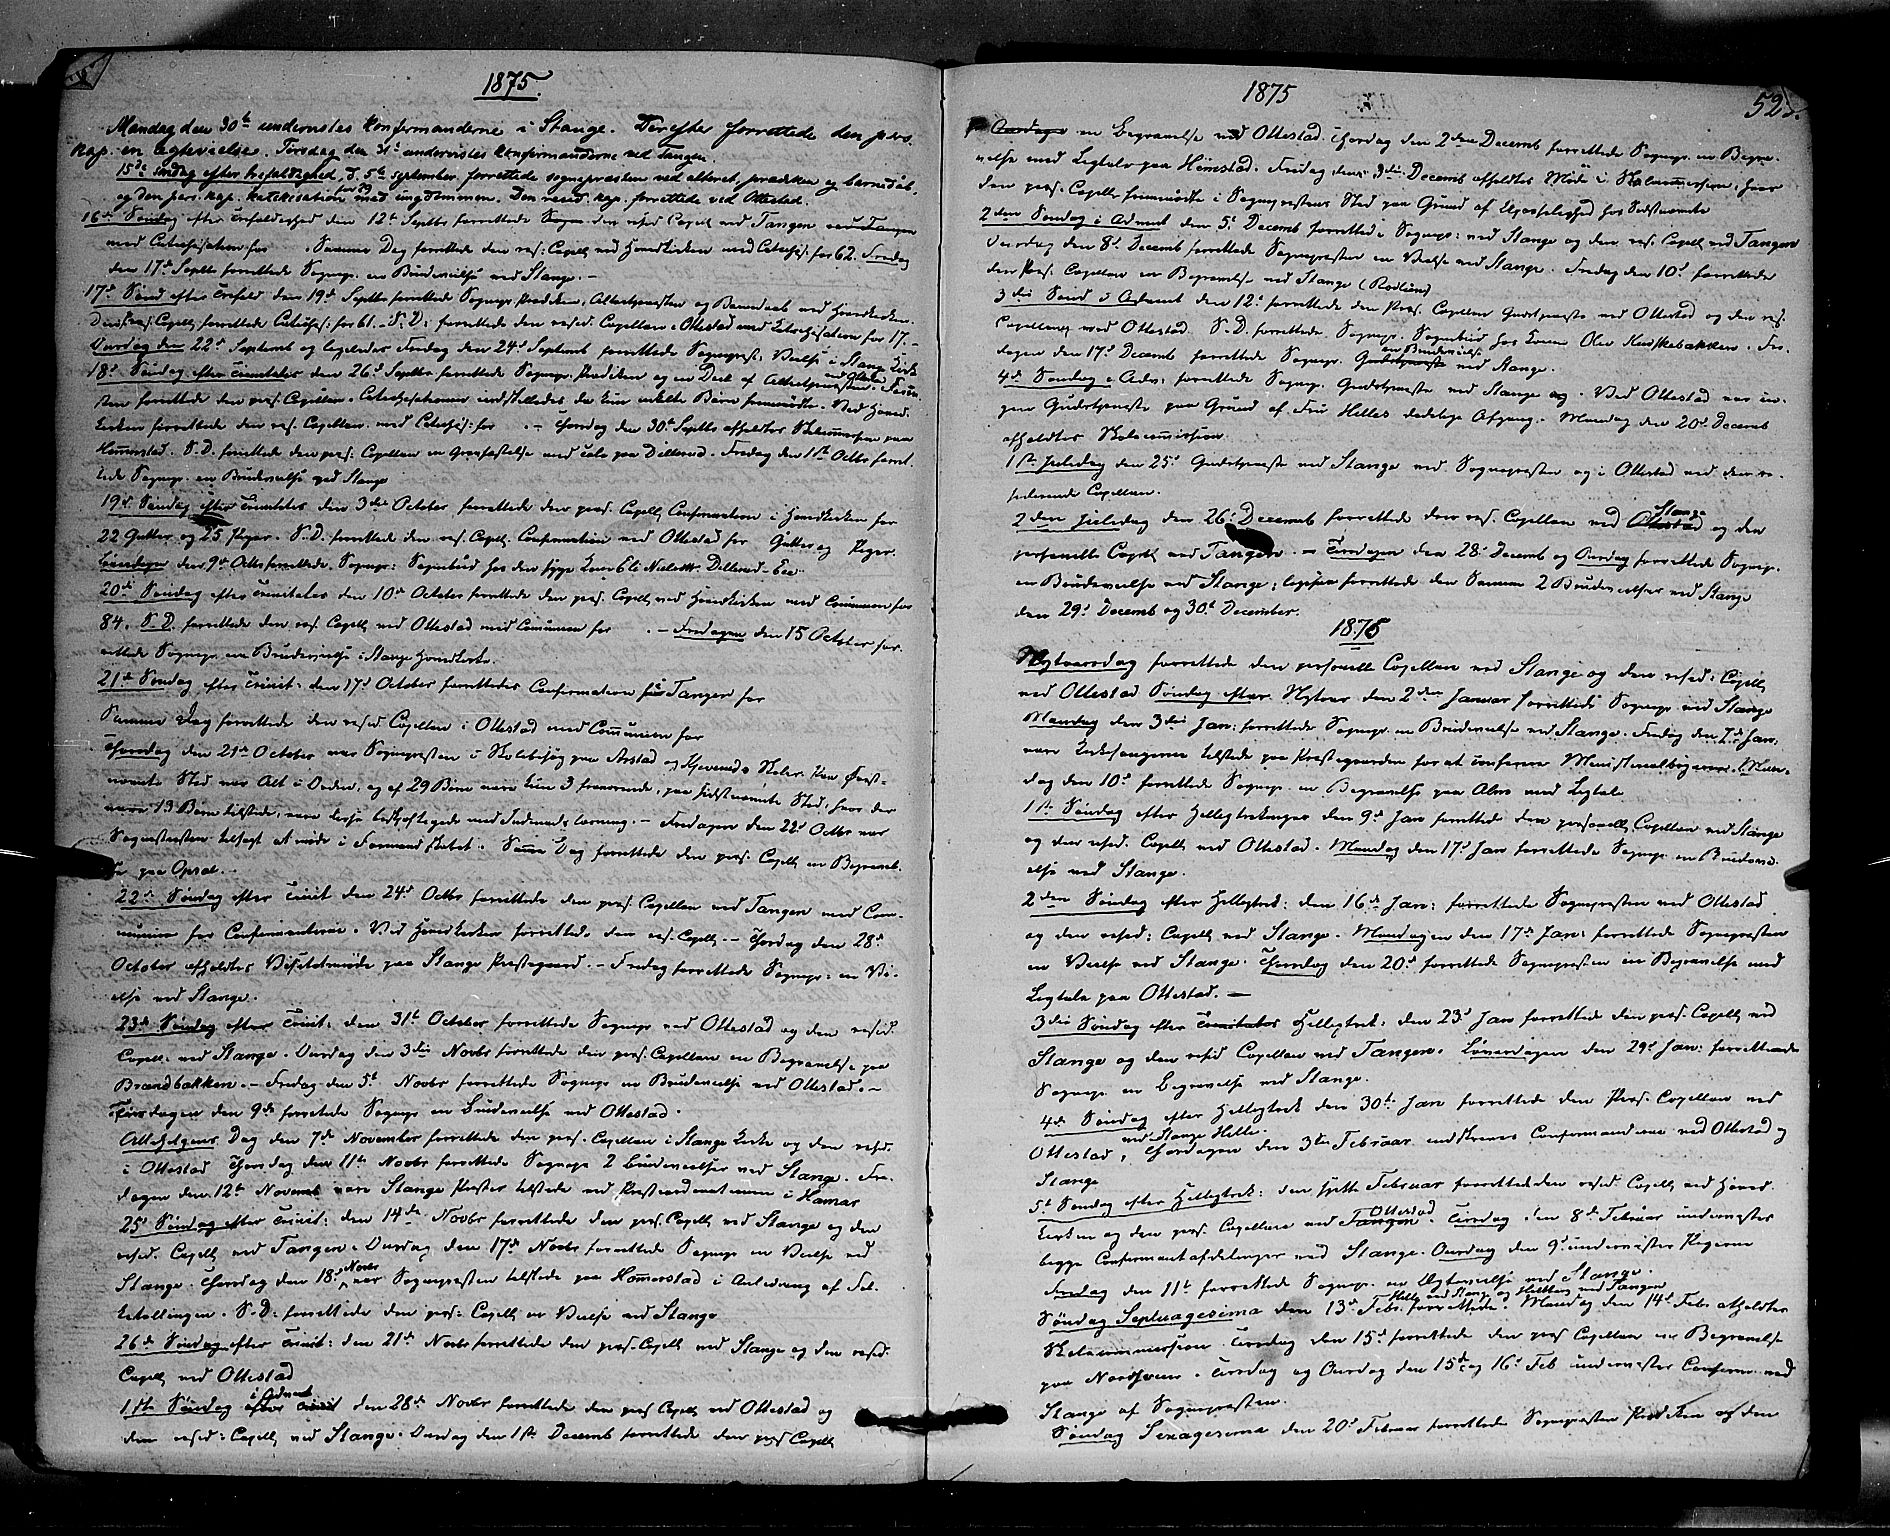 1875.
Mandag den 30te undervistes Konfirmanderne i Stange. Derefter forrettede den pers.
kap. en Ægtevielse. Tirsdag den 31te undervistes Konfirmanderne ved Tangen.
15de Søndag efter Trefoldighed, d. 5te September, forrettede sognepræsten ved alteret, prædiken og barnedåb,
og den pers. kap. katekisation for 79 med ungdommen. Den resid. kap. forrettede ved Ottestad.
16de Søndag efter Trefoldighed den 12te Septbr forrettede Sogne den resid Capell ved Tangen ved Tangen
med Catechisation for . Samme Dag forrettede den pers: Capell ved Hovedkirken med Catechis: for 62. Fredag
den 17de Septbr forrettede Sognepr. en Brudevielse ved Stange. –
17de Sønd efter Trefold den 19de Septbr forrettede Sognepr Prædiken, Altertjenesten og Barnedaab ved Hovedkirken.
Den pers. Capell forrettede Catechis: for 61. – S. D: forrettede den resid. Capellan i Ottestad med Catechisation for 17. –
Onsdag den 22de Septemb og ligeledes Fredag den 24de Septemb forrettede Sognepræst: Vielse i Stange Kirke
18de Søndag efter Trinitatis den 26de Septbr forrettede Sognepr. Prædiken og en Deel af Altertjenesten ved Ottestad. Tjene-
sten forrettede den pers. Capellan. Catechisationen indstilledes da kun enkelte Børn fremmødte. Ved Hoved-
kirken forrettede den res. Capellan med Catechis: for . – Thorsdag den 30te Septbr afholdtes Skolecommission paa
Hommerstad. S. D. forrettede den pers: Capellan en Gravfæstelse med Tale paa Dillerud. Fredag den 1ste Octbr forret-
tede Sognepr. en Brudevielse ved Stange
19de Søndag efter Trinitatis den 3die October forrettede den pers. Capell Confirmation i Hovedkirken for
22 Gutter og 25 Piger. S. D. forrettede den res. Capell. Confirmation ved Ottestad for Gutter og Piger.
Løverdagen den 9de Octbr forrettede Sognepr: Sognebud hos den syge Kone Eli Nielsdtr. Dillerud-Eie.
20de Søndag efter Trinitatis den 10de October forrettede den pers. Capell ved Hovedkirken med Communion for
84. S. D. forrettede den res. Capell ved Ottestad med Communion for . – Fredagen den 15 October for-
rettede Sognepr. en Brudevielse i Stange Hovedkirke.
21de Søndag efter Trinit: den 17de October forrettedes Confirmation i Tangen for
Samme Dag forrettede den resid Capellan i Ottestad med Communion for
Thorsdag den 21de October var Sognepræsten i Skolebesøg paa Arstad og Kjeverud's Skoler. Paa Først-
nævnte Sted var Alt i Orden, og af 29 Børn vare kun 3 fraværende, paa sidstnævnte Sted, hvor der
vare 13 Børn tilstede, vare disse beskjæftigede med Indenadslæsning. – Fredagen den 22de Octbr var
Sognepræsten tilsagt at møde i Formandskabet. Samme Dag forrettede den pers. Capell en Begravel-
se paa Opsal. –
22de Søndag efter Trinit den 24de Octbr forrettede den pers. Capellan ved Tangen med Com-
munion for Confirmanterne. Ved Hovedkirken forrettede den res. Capell. – Thorsdag den 28de
October afholdtes Visitatsmøde paa Stange Præstegaard. – Fredag forrettede Sognepr: en Vi-
else ved Stange.
23de Søndag efter Trinit: den 31te October forrettede Sognepr ved Ottestad og den resid.
Capell: ved Stange. Onsdag den 3die Novbr forrettede den pers. Capellan en Begravelse paa
Brandbakken. – Fredag den 5te Novbr forrettede Sognepr en Brudevielse ved Ottestad. –
Tirsdagen den 9de forrettede Sognepr en Brudevielse ved Ottestad.
Allehelgens Dag den 7de November forrettede den pers. Capellan i Stange Kirke og den resid.
i Ottestad Thorsdag den 11te Novbr forrettede Sognepr 2 Brudevielser ved Stange. Fre-
dagen den 12te Novemb vare Stange Præster tilstede ved Præsteordinationen i Hamar
25de Søndag efter Trinit: den 14de Novbr forrettede den pers. Capell ved Stange og den
resid. Capell ved Tangen. Onsdag den 17de Novbr forrettede Sognepr en Vielse ved
Stange. Thorsdag den 18de Novbr var Sognepræsten tilstede paa Hommerstad i Anledning af Fol-
ketællingen. S. D: forrettede den pers: Capell en Vielse ved Stange
26de Søndag efter Trinit: den 21de Novbr forrettede den pers. Capell ved Stange og den resid.
Capell ved Ottestad
1ste Søndag efter Trinit i Advent den 28de Novbr forrettede den pers Capell ved Ottestad og
den resid: Capell ved Stange. Onsdag den 1ste Decemb forrettede den pers Capell
1875
525.
Onsdage en Begravelse ved Ottestad. Thorsdag den 2den Decemb forrettede Sognepr. en Begra-
velse med Ligtale paa Hømstad. Fredag den 3die Decemb afholdtes Møde i Skolecommission, hvor
den pers. Capell fremmødte i Sognepræstens Sted paa Grund af Upasselighed hos Sidstnævnte
2den Søndag i Advent den 5te Decemb forrettede Sognepr: ved Stange og den res. Capell ved Tangen
Onsdag den 8de Decemb forrettede Sognepræsten en Vielse ved Stange. Fredag den 10de forrettede
den Pers. Capellan en Begravelse ved Stange (Rodlund)
3die Sønd i Advent den 12te forrettede den Pers. Capellan Gudstjeneste ved Ottestad og den res.
Capellan ved Ottestad. S. D. forrettede Sognepr. Sognebud hos Konen Olea Kuskebakken. Fre-
dagen den 17de Decemb forrettede Sognepr. Gudstjeneste en Brudevielse ved Stange.
4de Søndag i Adv: forrettede Sognepr. Gudstjeneste ved Stange og . Ved Ottestad var in-
gen Gudstjeneste paa Grund af Fru Helles dødelige Afgang. Mandag den 20de Decemb
afholdtes Skolecommission.
1ste Juledag den 25de Gudstjeneste ved Stange ved Sognepræsten og i Ottestad ved den re-
siderende Capellan.
2den Juledag den 26de Decemb forrettede den res. Capellan ved Ottestad Stange og den
personelle Capell ved Tangen. – Tirsdagen den 28de Decemb og Onsdag forrettede Sognepr.
en Brudevielse ved Stange; ligesaa forrettede den Samme 2 Brudevielser ved Stange
den 29de Decemb og 30te December.
1876
Nytaarsdag forrettede den personelle Capellan ved Stange og den resid: Capell
ved Ottestad Søndag efter Nytaar den 2den Januar forrettede Sognepr ved Stange
Mandag den 3die Jan: forrettede Sognepr. en Brudevielse ved Stange. Fredag den 7de Jan:
vare Kirkesangerne tilstede paa Præstegaarden for at conferere Ministerialbøgerne. Man-
dag den 10de forrettede Sognepr. en Begravelse paa Alm med Ligtale
1ste Søndag efter Helligtrekonger den 9de Jan forrettede den personelle Capellan ved Stange
og den resid. Capell ved Ottestad. Mandag den 17de Jan forrettede Sognepr en Brudevi-
else ved Stange.
2den Søndag efter Helligtrek: den 16de Jan: forrettede Sognepræsten ved Ottestad
og den resid: Capell ved Stange. Mandagen den 17de Jan: forrettede Sognepræsten
en Vielse ved Stange. Thorsdag den 20de forrettede Sognepræsten en Begravelse med
Ligtale paa Ottestad. –
3die Søndag efter Trinitatis Helligtrek: den 23de Jan forrettede den pers. Capell ved
Stange og den resid Capellan ved Tangen. Løverdagen den 29de Jan: forrettede
Sognepr en Begravelse ved Stange.
4de Søndag efter Helligtrek den 30te Jan forrettede den Pers. Capellan ved
Ottestad, ved Stange Helle. Thorsdagen den 3die Februar undervistes Confirmanderne ved Ottestad og
Stange
5te Søndag efter Helligtrek: den sjette Februar forrettede den resid. Capell ved Hoved-
kirken og den pers. Capellan ved Tangen Ottestad. Tirsdag den 8de Februar undervistes
begge Confirmantafdelinger ved Stange. Onsdag den 9de undervistes Pigerne
Fredag den 11te forrettede Sognepr. en Ægtevielse ved Stange.
Søndag Septuagesima den 13de Febr. forrettede Helle ved Stange og Hellberg ved Tangen. Mandag den 14de Febr afholdtes
Skolecommission. Tirsdag den 15de forrettede den pers Capellan en Begravelse
paa Nordsveen. Tirsdag og Onsdag den 15de og 16de Feb undervistes Confirm. ved
Stange af Sognepræsten.
Søndag Sexagesima den 20de Februar forrettede Sognepræsten Prædiken og den